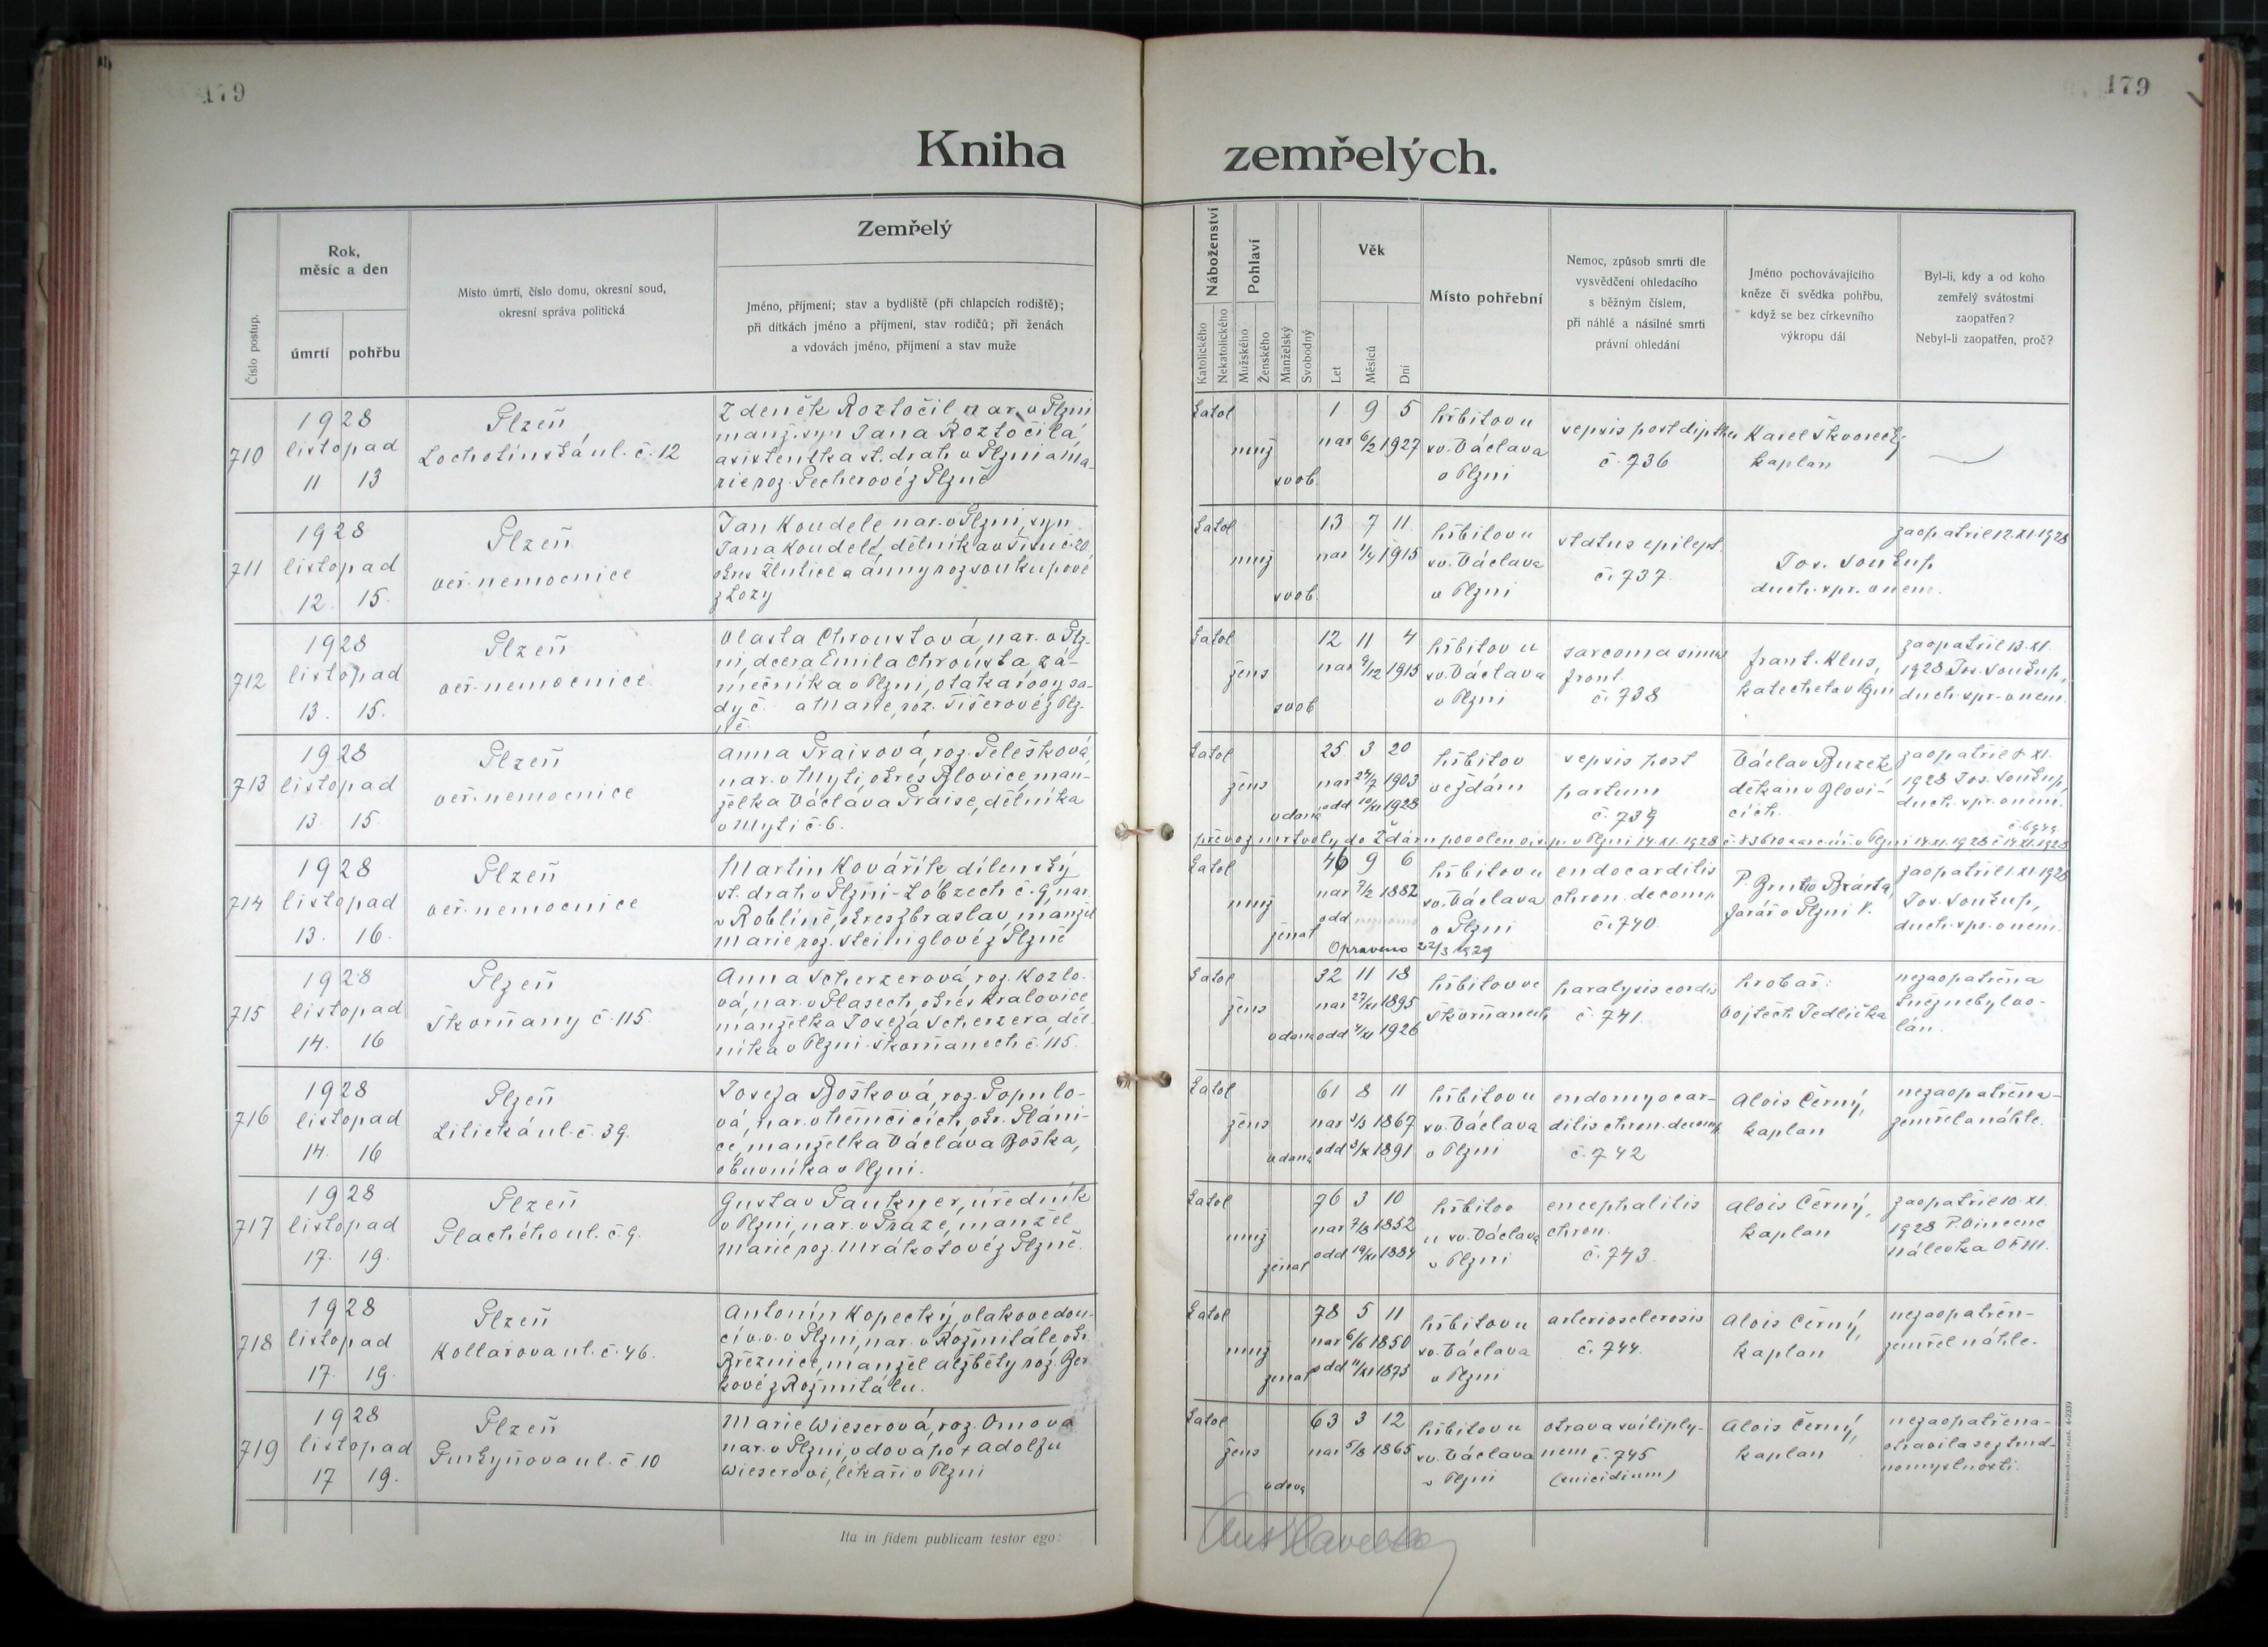 179
179
Kniha zemřelých.
Číslo postup.
Rok,
měsíc a den
úmrtí
pohřbu
Místo úmrtí, číslo domu, okresní soud,
okresní správa politická
Zemřelý
Jméno, příjmení; stav a bydliště (při chlapcích rodiště);
při dítkách jméno a příjmení, stav rodičů; při ženách
a vdovách jméno, příjmení a stav muže
Náboženství
Katolického
Nekatolického
Pohlaví
Mužského
Ženského
Manželský
Svobodný
Věk
Let
Měsíců
Dní
Místo pohřební
Nemoc, způsob smrti dle
vysvědčení ohledacího
s běžným číslem,
při náhlé a násilné smrti
právní ohledání
Jméno pochovávajícího
kněze či svědka pohřbu,
když se bez církevního
výkropu dál
Byl-li, kdy a od koho
zemřelý svátostmi
zaopatřen?
Nebyl-li zaopatřen, proč?
710
1928
listopad
11 13
Plzeň
Lochotínská ul. č. 12
Zdeněk Roztočil nar. v Plzni
manž. syn Jana Roztočila,
asistentka st. drah v Plzni a Ma-
rie roz. Pecherové z Plzně
katol
muž
svob.
1 9 5
nar 6/2 1927
hřbitov u
sv. Václava
v Plzni
sepsis post dipther
č. 736
Karel Škvorecký
kaplan
711
1928
listopad
12. 15.
Plzeň
veř. nemocnice
Jan Koudele nar. v Plzni, syn
Jana Koudele, dělníka v Šipu č. 20
okres Žlutice a Anny roz Soukupové
z Lozy
katol
muž
svob.
13 7 11
nar 1/4 1915
hřbitov u
sv. Václava
v Plzni
status epilept.
č. 737.
Jos. Soukup,
duch. spr. v nem.
zaopatřil 12. XI. 1928
712
1928
listopad
13. 15.
Plzeň
veř. nemocnice
Vlasta Chroustová, nar. v Plz-
ni, dcera Emila Chrousta, zá-
mečníka v Plzni, Otakarovy sa-
dy č. a Marie, roz. Tišerové z Plz-
ně
katol
žens
svob
12 11 4
nar 9/12 1915
hřbitov u
sv. Václava
v Plzni
sarcoma sinus
front.
č. 738
Frant. Klus,
katecheta v Plzni
zaopatřil 13. XI.
1928 Jos. Soukup,
duch. spr. v nem.
713
1928
listopad
13. 15.
Plzeň
veř. nemocnice
Anna Praisová, roz. Pelešková,
nar. v Mýti, okres Blovice, man-
želka Václava Praise, dělníka
v Mýti č. 6.
katol
žens
vdaná
25. 3 20
nar 24/7 1903
odd 10/XI 1928
hřbitov
ve Ždáru
sepsis post
partum
č. 739
Václav Buzek,
děkan v Blovi-
cích.
zaopatřil 8. XI.
1928 Jos. Soukup,
duch. spr. v nem.
převoz mrtvoly do Ždáru povolen o. s. p. v Plzni 14. XI. 1928
714
1928
listopad
13. 16.
Plzeň
veř. nemocnice
Martin Kovářík dílenský
st. drah v Plzni-Lobzech č. 9, nar.
v Roblíně, okres Zbraslav, manžel
Marie roz. Steiniglové z Plzně
katol
muž
ženat
46 9 6
nar 7/2 1882
odd
Opraveno 22/3 1929
hřbitov u
sv. Václava
v Plzni
endocarditis
chron. decomp.
č. 740.
P. Bruno Brárta,
farář v Plzni V.
zaopatřil 1. XI. 1928
Jos. Soukup,
duch. spr. v nem.
715
1928
listopad
14. 16
Plzeň
Skvrňany č. 115.
Anna Scherzerová, roz. Kozlo-
vá, nar. v Plasech, okres Kralovice
manželka Josefa Scherzera, děl-
níka v Plzni-Skvrňanech č. 115.
katol
žens
vdaná
32 11 18
nar 27/XI 1895
odd 4/XI 1926
hřbitov ve
Skvrňanech
paralysis cordis
č. 741.
hrobař:
Vojtěch Jedlička
nezaopatřena
kněz nebyl vo-
lán.
716
1928
listopad
14. 16
Plzeň
Lilická ul. č. 39.
Josefa Bošková, roz. Populo-
vá, nar. v Němčicích, okr. Pláni-
ce, manželka Václava Boška,
obuvníka v Plzni.
katol
žens
vdaná
61 8 11
nar 3/3 1867
odd 3/X 1891
hřbitov u
sv. Václava
v Plzni
endomyocar-
ditis chron. decomp.
č. 742
Alois Černý,
kaplan
nezaopatřena-
zemřela náhle.
717
1928
listopad
17. 19.
Plzeň
Plachého ul. č. 9.
Gustav Paukner, úředník
v Plzni, nar. v Praze, manžel
Marie, roz. Mrákotové z Plzně.
katol
muž
ženat
76 3 10
nar 7/8 1852
odd 19/XI 1884
hřbitov
u sv. Václava
v Plzni
encephalitis
chron.
č. 743.
Alois Černý,
kaplan
zaopatřil 10. XI.
1928 P. Vincenc
Nálevka OFM.
718
1928
listopad
17. 19.
Plzeň
Kollárova ul. č. 46.
Antonín Kopecký, vlakvedou-
cí v. v. v Plzni, nar. v Rožmitále okr.
Březnice, manžel Alžběty roz. Ber
kové z Rožmitálu.
katol
muž
ženat
78 5 11
nar 6/6 1850
odd 11/XI 1873
hřbitov u
sv. Václava
v Plzni
arteriosclerosis
č. 744.
Alois Černý,
kaplan
nezaopatřen-
zemřel náhle.
719
1928
listopad
17 19.
Plzeň
Purkyňova ul. č. 10
Marie Wieserová, roz. Omova
nar. v Plzni, vdova po † Adolfu
Wieserovi, lékaři v Plzni
katol
žens
vdova
63 3 12
nar 5/8 1865
hřbitov u
sv. Václava
v Plzni
otrava svítiply-
nem č. 745
(suicidium)
Alois Černý,
kaplan
nezaopatřena-
otrávila se z trud-
nomyslnosti.
Ita in fidem publicam testor ego: